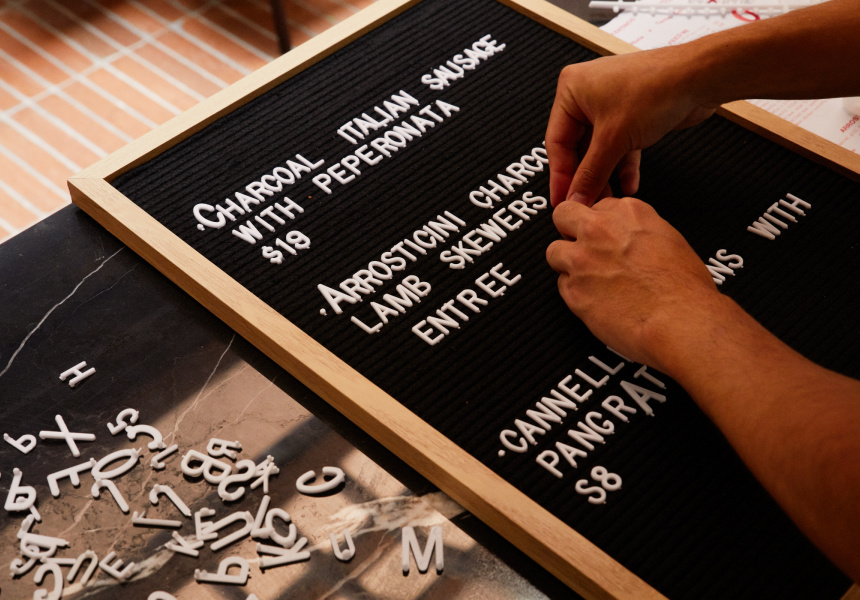 .CHARCOAL ITALIAN SAUSAGE
WITH PEPERONATA
$19
.ARROSTICINI CHARCO
LAMB SKEWERS
ENTREE
.CANNELL NS WITH
PANGRAT
$8